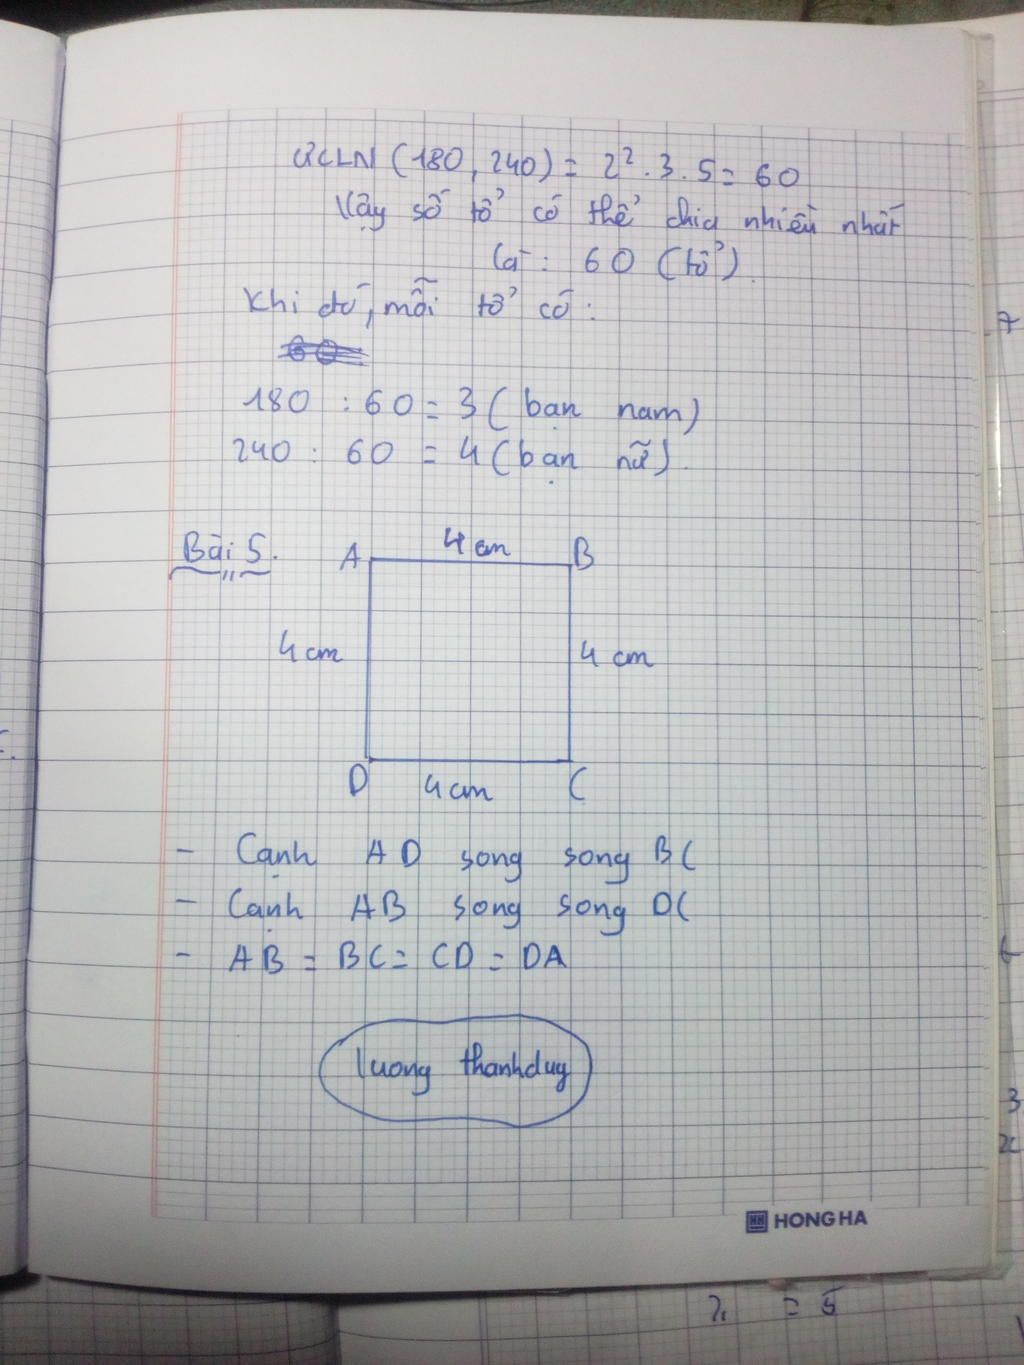 ƯCLN (180, 240) = 2². 3. 5 = 60
Vậy số tổ có thể chia nhiều nhất
là : 60 (tổ).
Khi đó, mỗi tổ có :
180 : 60 = 3 ( bạn nam)
240 : 60 = 4 ( bạn nữ).
Bài 5.
A 4 cm B
4 cm 4 cm
D 4 cm C
- Cạnh AD song song BC
- Cạnh AB song song DC
- AB = BC = CD = DA
luong thanhduy
HONG HA
7
3
x = 5